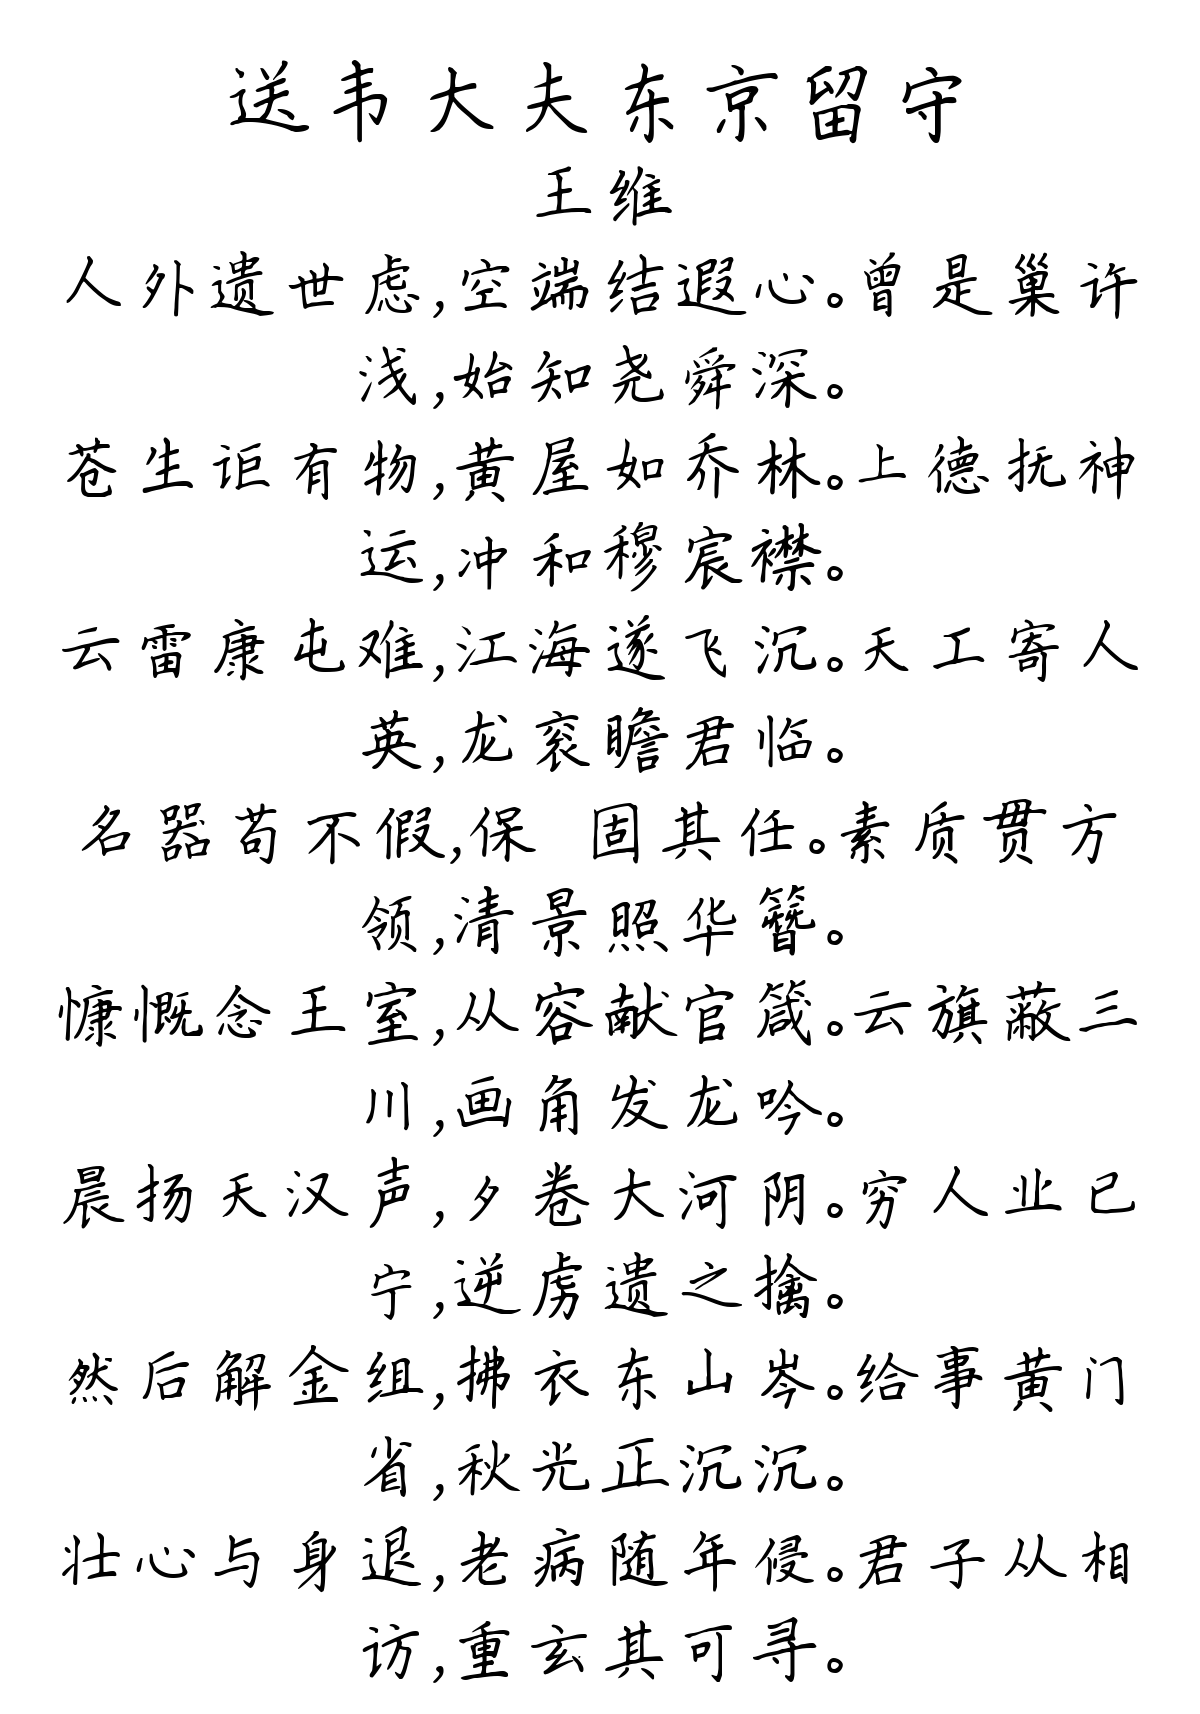 送韦大夫东京留守
王维
人外遗世虑,空端结遐心。曾是巢许
浅,始知尧舜深。
苍生讵有物,黄屋如乔林。上德抚神
运,冲和穆宸襟。
云雷康屯难,江海遂飞沉。天工寄人
英,龙衮瞻君临。
名器苟不假,保 固其任。素质贯方
领,清景照华簪。
慷慨念王室,从容献官箴。云旗蔽三
川,画角发龙吟。
晨扬天汉声,夕卷大河阴。穷人业已
宁,逆虏遗之擒。
然后解金组,拂衣东山岑。给事黄门
省,秋光正沉沉。
壮心与身退,老病随年侵。君子从相
访,重玄其可寻。